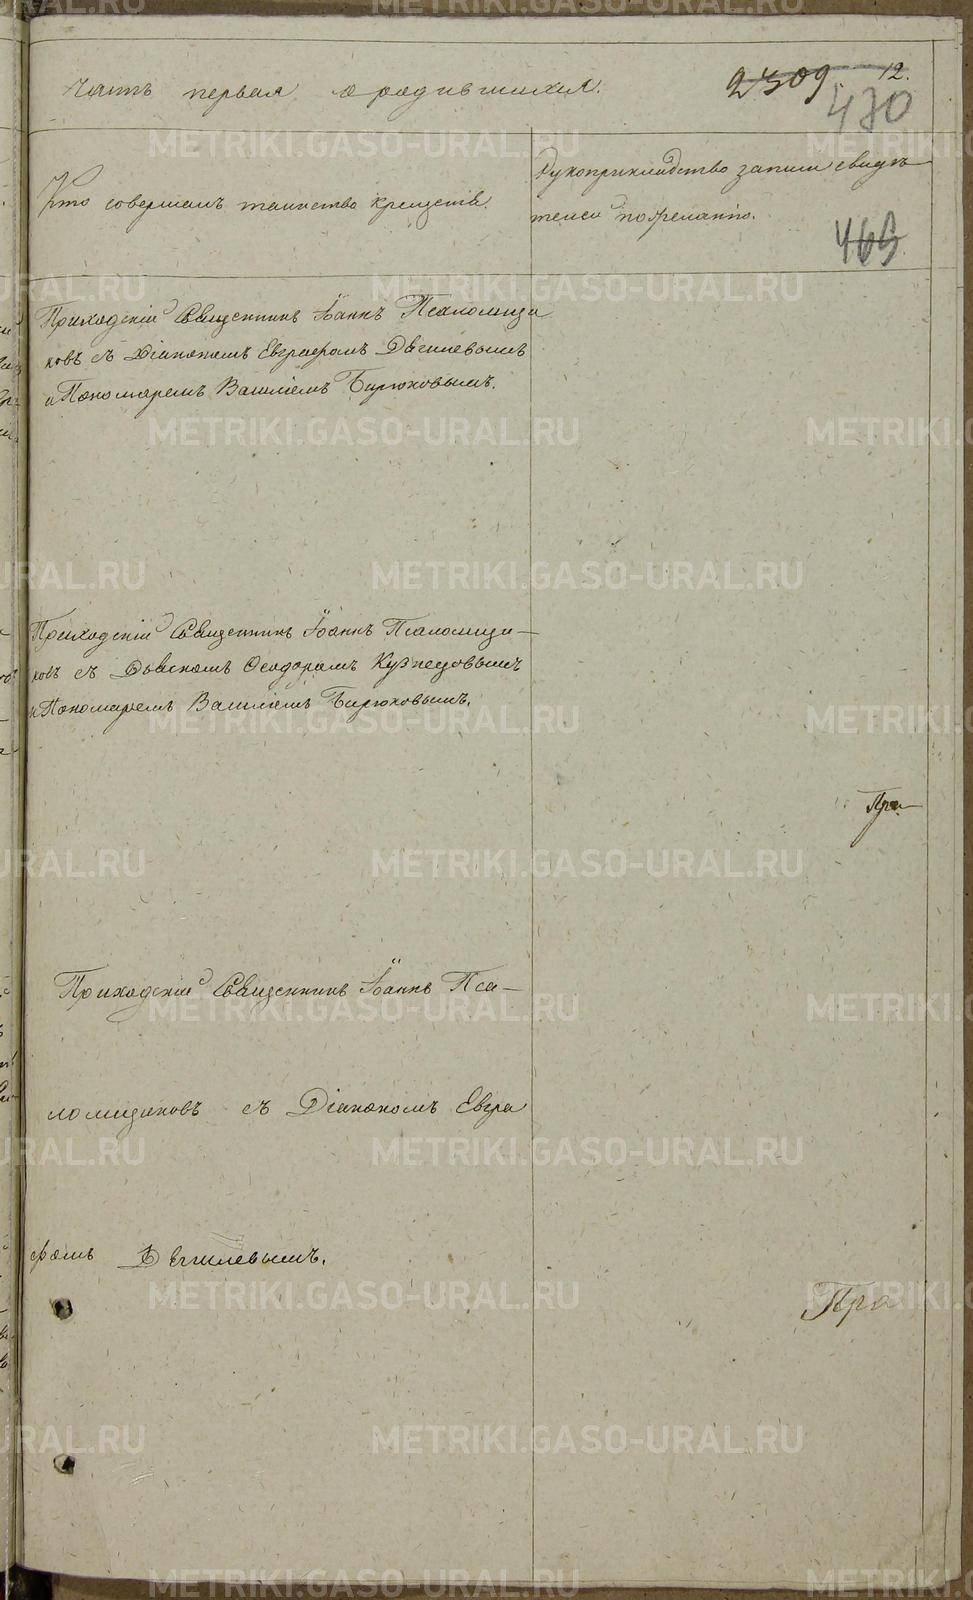 Часть первая о родившихся.
2309. 12.
470
Кто совершалъ таинство крещенія.
Рукоприкладство записи свидѣ-
телей по желанію.
469
Приходскій Священникъ Іоаннъ Псаломщи
ковъ съ Діакономъ Евграфомъ Двчилевымъ
и Пономаремъ Василіемъ Бирюковымъ.
Приходскій Священникъ Іоаннъ Псаломщи-
ковъ съ Дьячкомъ Ѳеодоромъ Кузнецовымъ
и Пономаремъ Василіемъ Бирюковымъ.
Пра-
Приходскій Священникъ Іоаннъ Пса-
ломщиковъ съ Діакономъ Евгра
фомъ
Пра
METRIKI.GASO-URAL.RU